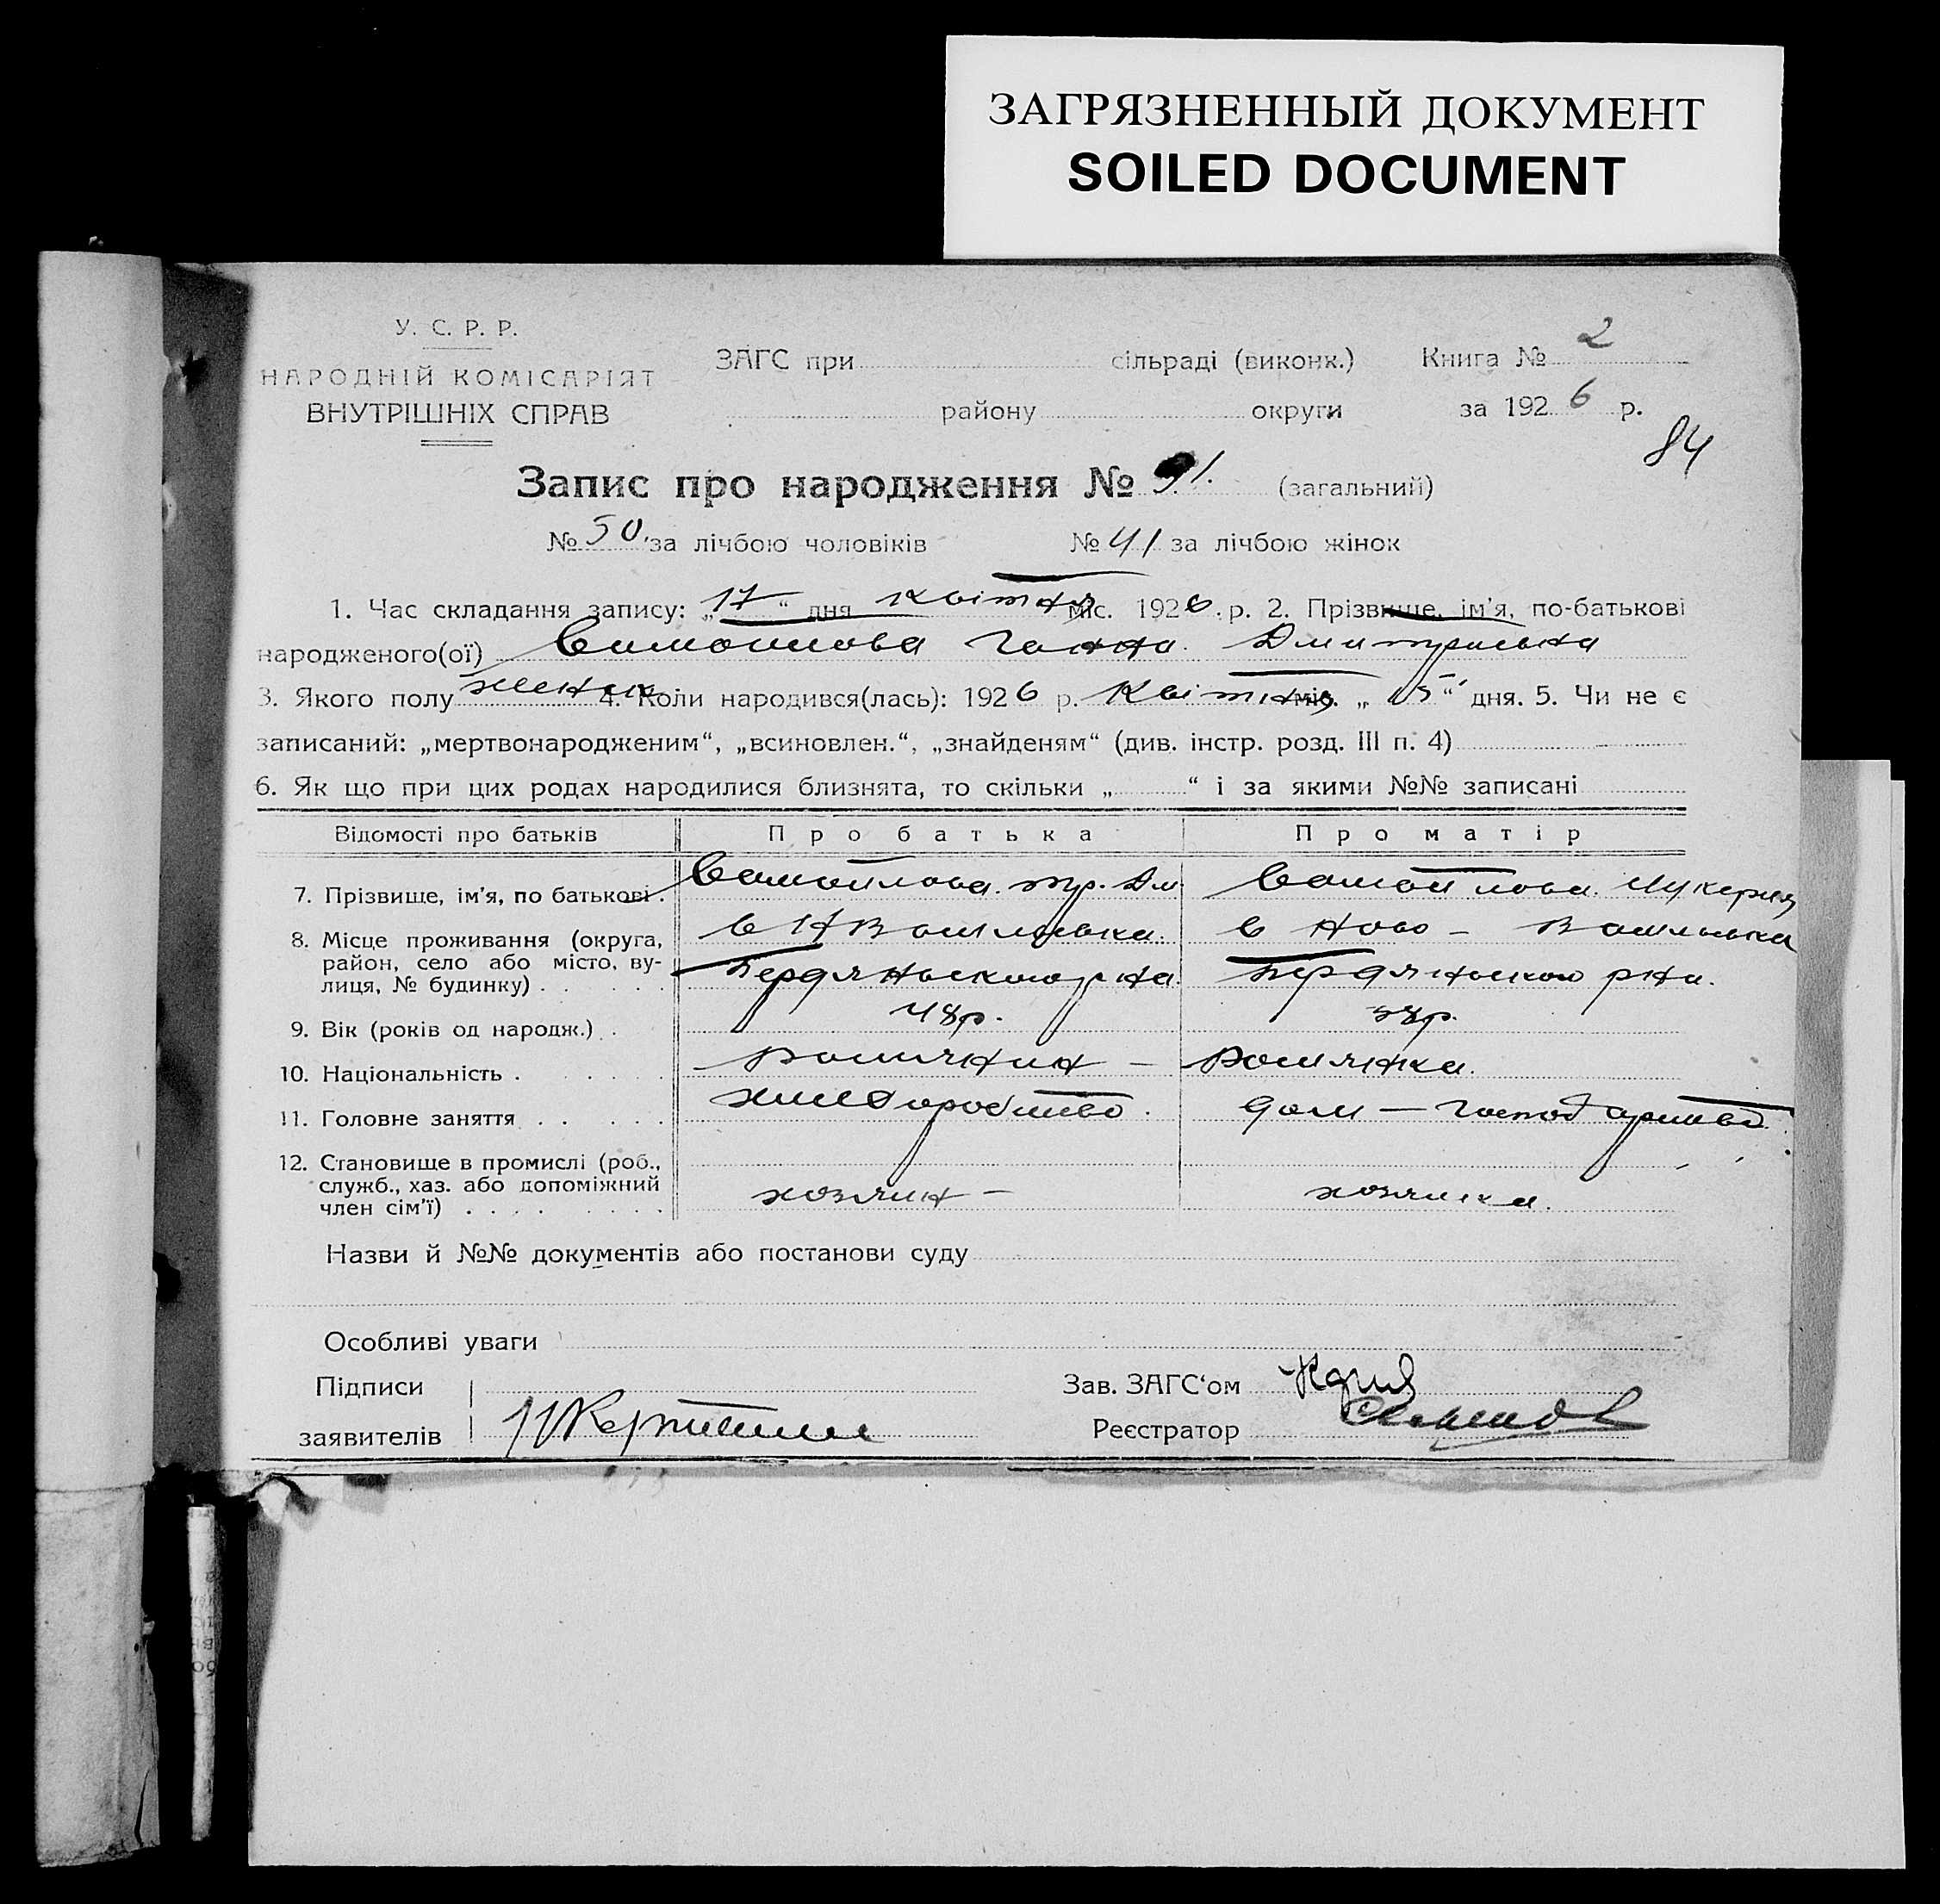 ЗАГРЯЗНЕННЫЙ ДОКУМЕНТ
SOILED DOCUMENT
У. С. Р. Р.
НАРОДНІЙ КОМІСАРІЯТ
ВНУТРІШНІХ СПРАВ
ЗАГС при сільраді (виконк.) Книга № 2
району округи за 1926 р.
84
Запис про народження № 91. (загальний)
№ 50. за лічбою чоловіків № 41 за лічбою жінок
1. Час складання запису: „17“ дня квітня міс. 1926 р. 2. Прізвище, ім’я, по-батькові
народженого(ої) Ганна
3. Якого полу 4. Коли народився(лась): 1926 р. квітня міс. „15“ дня. 5. Чи не є
записаний: „мертвонародженим“, „всиновлен.“, „знайденям“ (див. інстр. розд. III п. 4)
6. Як що при цих родах народилися близнята, то скільки „ “ і за якими №№ записані
Відомості про батьків Про батька Про матір
7. Прізвище, ім’я, по батькові.
8. Місце проживання (округа, с Ново-Васильовка
район, село або місто, ву-
лиця, № будинку)
9. Вік (років од народж.) 48р. 38р.
10. Національність росіянин – росіянка.
11. Головне заняття хліборобство. дом – господарство
12. Становище в промислі (роб.,
служб., хаз. або допоміжний хозяин – хозяйка.
член сім’ї)
Назви й №№ документів або постанови суду
Особливі уваги
Підписи Зав. ЗАГС‘ом
заявителів Реєстратор